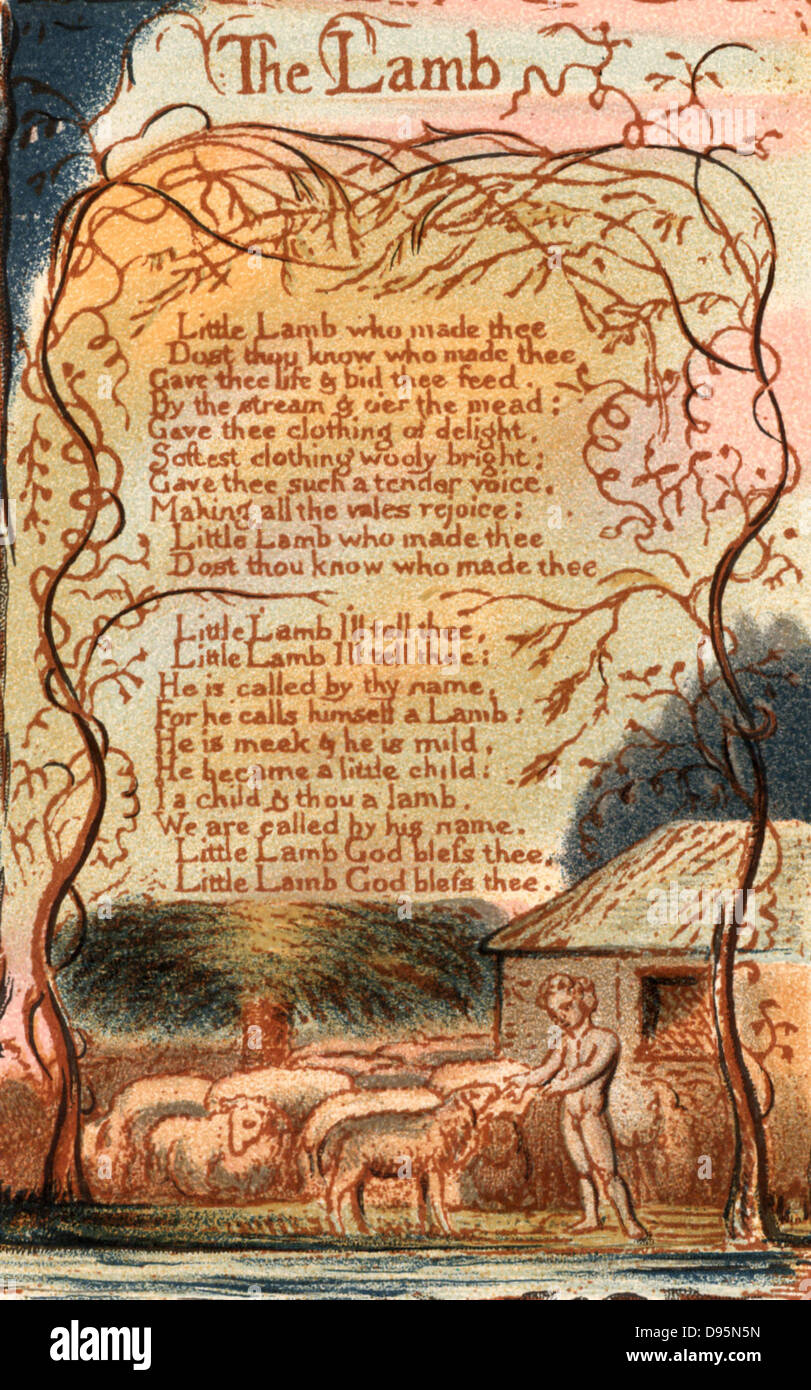 The Lamb
Little Lamb who made thee
Dost thou know who made thee
Gave thee life & bid thee feed.
By the stream & o'er the mead;
Gave thee clothing of delight,
Softest clothing wooly bright;
Gave thee such a tender voice,
Making all the vales rejoice;
Little Lamb who made thee
Dost thou know who made thee
Little Lamb I'll tell thee,
Little Lamb I'll tell thee;
He is called by thy name,
For he calls himself a Lamb:
He is meek & he is mild,
He became a little child:
I a child & thou a lamb,
We are called by his name.
Little Lamb God bleſs thee,
Little Lamb God bleſs thee.
alamy
alamy
Image ID: D95N5N
www.alamy.com